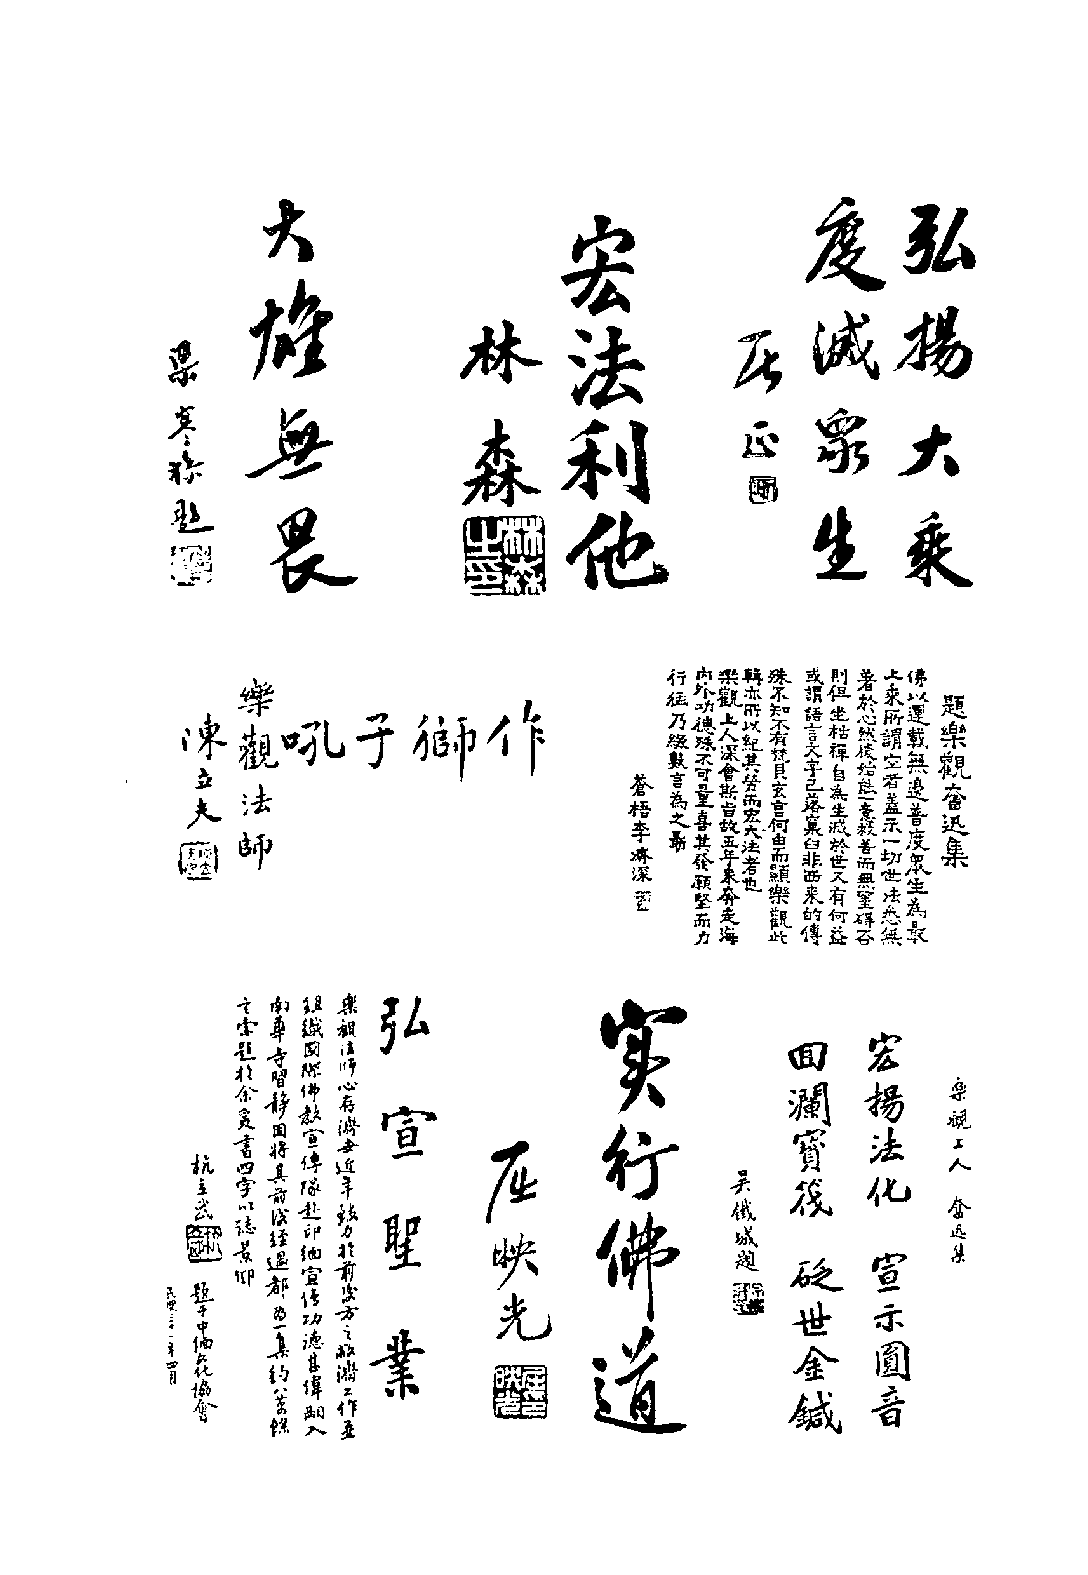 弘揚大乘
度滅眾生
居正
宏法利他
林森
林森之印
大雄無畏
梁寒操題
題樂觀奮迅集
佛以運載無邊普度眾生為最
上乘所謂空者蓋示一切世法悉無
著於心然後始能一意救善而無罣礙否
則但坐枯禪自為生滅於世又有何益
或謂語言文字已落窠臼非西來的傳
殊不知不有梵貝玄言何由而顯樂觀此
輯亦所以紀其勞而宏大法者也
樂觀上人深會斯旨故五年來奔走海
內外功德殊不可量喜其發願堅而力
行猛乃綴數言為之勗
蒼梧李濟深
作獅子吼
樂觀法師
陳立夫
樂觀上人 奮迅集
宏揚法化 宣示圓音
回瀾寶筏 砭世金鍼
吳鐵城題
實行佛道
屈映光
屈映光
弘宣聖業
樂觀法師心存濟世近年致力於前後方之救濟工作並
組織國際佛教宣傳隊赴印緬宣傳功德甚偉嗣入
南華寺習靜因將其前後經過都為一集約八萬餘
言索題於余爰書四字以誌景仰
杭立武
題于中緬文化協會
民國三十一年四月